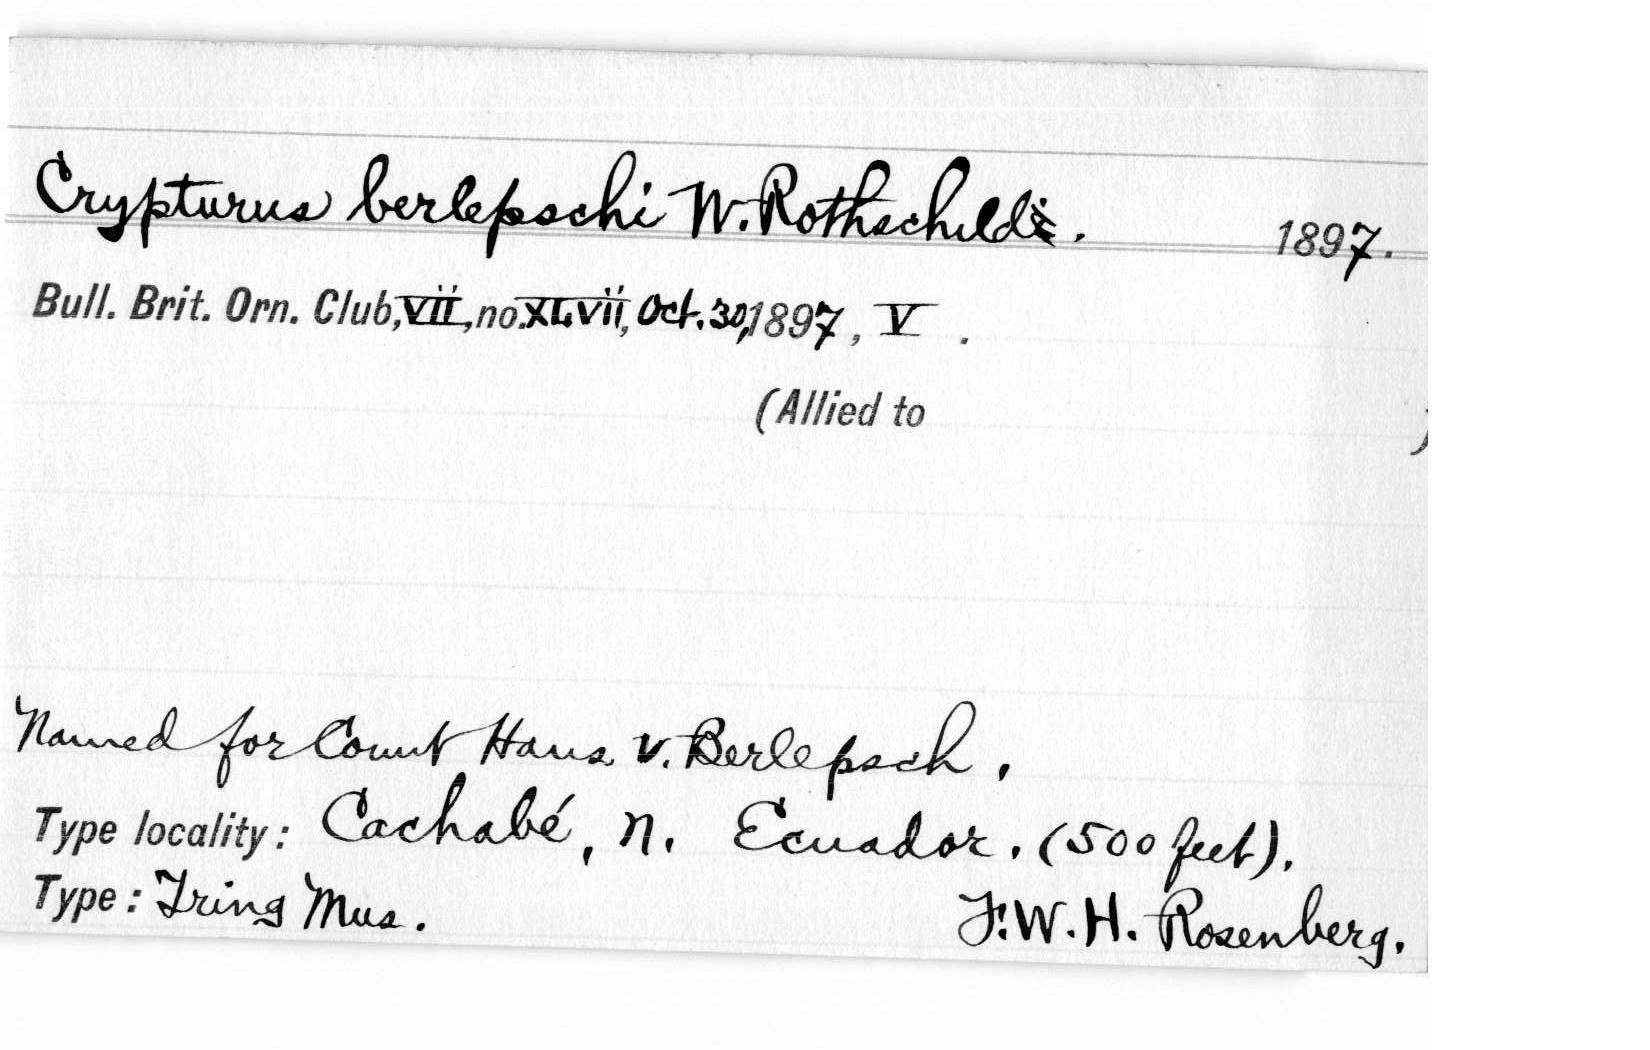 Crypturus berlepschi W. Rothschild. 1897.
Bull. Brit. Orn. Club, VII, no. XLVII, Oct. 30, 1897, V.
(Allied to )
Named for Count Hans v. Berlepsch.
Type locality: Cachabé, n. Ecuador. (500 feet).
Type: Tring Mus. F. W. H. Rosenberg.